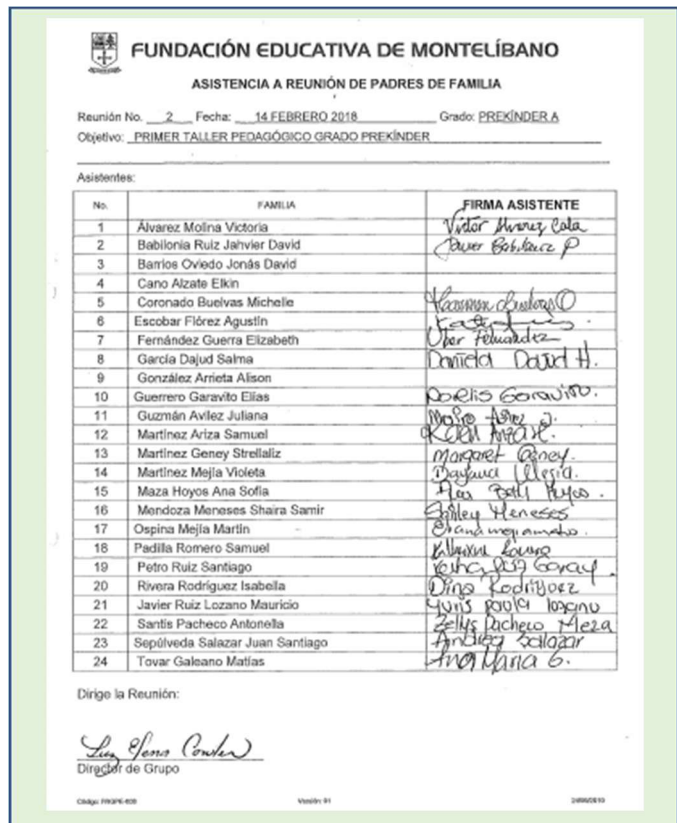 FUNDACIÓN EDUCATIVA DE MONTELÍBANO
ASISTENCIA A REUNIÓN DE PADRES DE FAMILIA
Reunión No. 2 Fecha: 14 FEBRERO 2018 Grado: PREKÍNDER A
Objetivo: PRIMER TALLER PEDAGÓGICO GRADO PREKÍNDER
Asistentes:
No. FAMILIA FIRMA ASISTENTE
1 Álvarez Molina Victoria Victor Alvarez Cala
2 Babilonia Ruiz Jahvier David Javier Babilonia P
3 Barrios Oviedo Jonás David
4 Cano Alzate Elkin
5 Coronado Buelvas Michelle
6 Escobar Flórez Agustín
7 Fernández Guerra Elizabeth Uber Fernandez
8 García Dajud Salma Daniela Dajud H.
9 González Arrieta Alison
10 Guerrero Garavito Elías Dorelis Garavito.
11 Guzmán Avilez Juliana
12 Martínez Ariza Samuel
13 Martínez Geney Strellaliz Margaret Geney.
14 Martínez Mejía Violeta Dayana
15 Maza Hoyos Ana Sofía Hoyos.
16 Mendoza Meneses Shaira Samir Meneses
17 Ospina Mejía Martín
18 Padilla Romero Samuel
19 Petro Ruiz Santiago Ruiz Garay
20 Rivera Rodríguez Isabella Dina Rodriguez
21 Javier Ruiz Lozano Mauricio Yuris paola lozano
22 Santis Pacheco Antonella Zellys Pacheco Meza
23 Sepúlveda Salazar Juan Santiago Andrea Salazar
24 Tovar Galeano Matías Ana Maria G.
Dirige la Reunión:
Luz Elena
Director de Grupo
Versión: 01